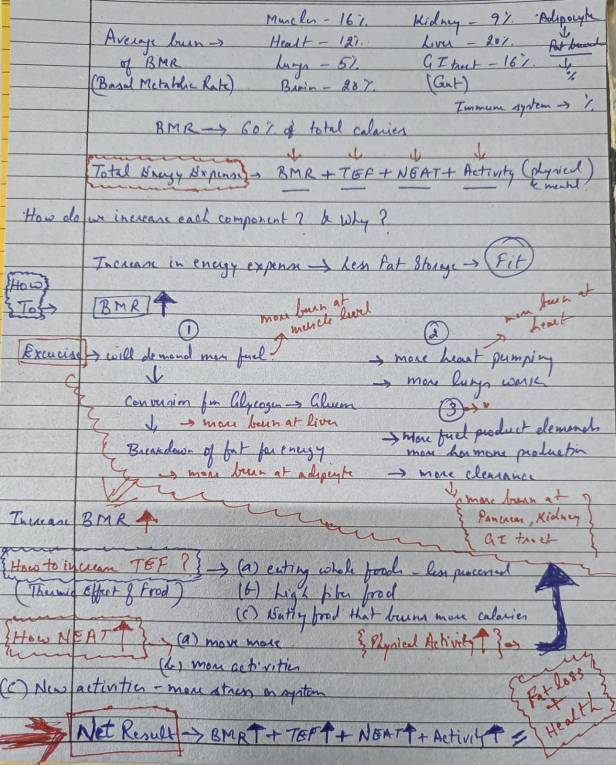 Muscles - 16%  Kidney - 9%  Adipocyte
Average burn → Heart - 12%  Liver - 20%  ↓
of BMR  Lungs - 5%  GI tract - 16%  Fat
(Basal Metabolic Rate)  Brain - 20%  (Gut)  %
Immune system → %
BMR → 60% of total calories
Total Energy Expense → BMR + TEF + NEAT + Activity (physical & mental)
How do we increase each component? & Why?
Increase in energy expense → Less Fat Storage → Fit
How To → BMR ↑
more burn at muscle level
more burn at heart
① ②
Exercise → will demand more fuel.  → more heart pumping
↓  → more lungs work
Conversion from Glycogen → Glucose  ③ →
↓ → more burn at liver  → more fuel product demands
Breakdown of fat for energy  more hormone production
→ more burn at adipocyte  → more clearance
↓
more burn at
Increase BMR ↑  Pancreas, Kidney
GI tract
How to increase TEF? → (a) eating whole foods - less processed
(Thermic Effect of Food)  (b) high fiber food
(c) Eating food that burns more calories
How NEAT ↑ → (a) move more  {Physical Activity ↑} →
(b) more activities
(c) New activities - more stress on system
Fat loss + Health
Net Result → BMR ↑ + TEF ↑ + NEAT ↑ + Activity ↑ =